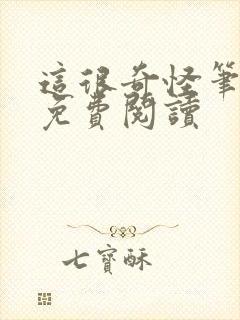 這很奇怪筆
免費閱讀
七寶酥